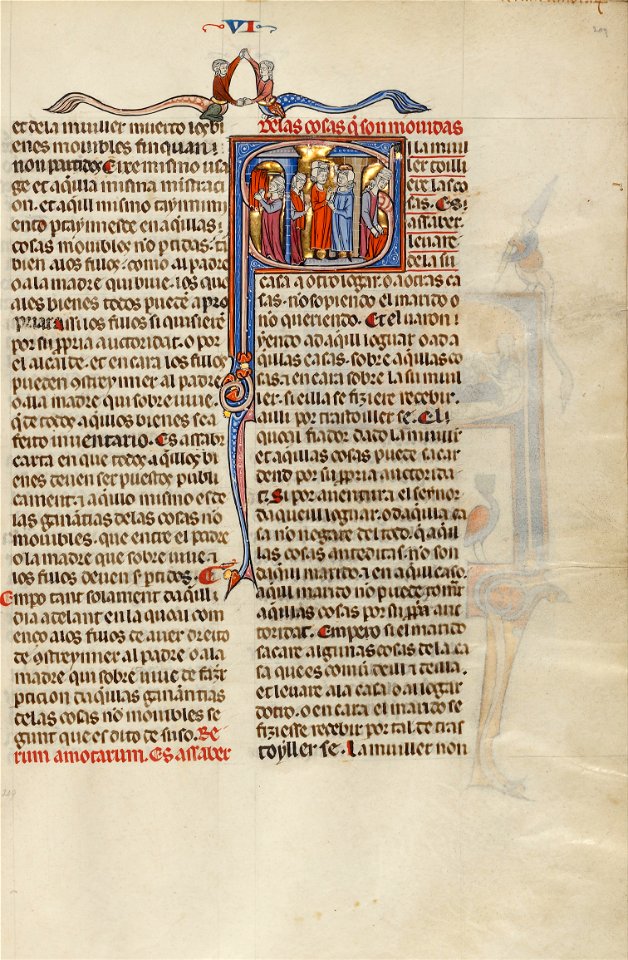 VI
et dela muiller muerto los bi
enes mouibles finquan ī
non partidos. Esse mismo usa
ge et aq̄lla misma mistraci
on. et aq̄ll mismo
ento enaq̄llas
cosas mouibles nō ptidas. tā
bien alos fillos. como al padre
o ala madre qui biue. los que
alos bienes todos puedē apro
priar. Assi los fillos si quisierē
por su ꝓpria auctoridat. o por
el alcalde. et en cara los fillos
pueden 9streynner al padre
o ala madre que sobre uiue.
q̄ de todos aq̄llos bienes sea
feito inuentario. Es assab̄
carta en que todos aq̄llos bi
enes deuen ser puestos publi
cament. z aq̄llo mismo es de
las ganācias delas cosas nō
mouibles. que entre el padre
o la madre que sobre uiue z
los fillos deuen ser ptidos. E
mpo tant solament daq̄lli
dia adelant en la quoal com
enço alos fillos de auer dreito
de 9streynner al padre o ala
madre qui sobre uiue de faz̄
pticion daq̄llas ganancias
delas cosas nō mouibles se
gunt que es dito de suso. Re
rum amotarum. Es assaber
delas cosas q̄ son mouidas
Si la muil
ler toilli
ere las co
sas. Es
assaber.
leuare
de la su
casa a otro logar. o a otras ca
sas. nō sopiendo el marido o
nō queriendo. Et el uaron ī
yendo ad aq̄lli loguar. o ad a
q̄llas casas. sobre aq̄llas co
sas. z en cara sobre la su muil
ler. si eilla se fiziere recebir.
ailli por trastoiller se. El
fiador dado la muiller
et aq̄llas cosas puede sacar
dend por su ꝓpria auctorida
t. Si por auentura el seynor
da quell loguar. o daq̄lla ca
sa nō negare del todo. q̄ aq̄ll
las cosas anteditas. nō son
daq̄ll marido. z en aq̄ll caso.
aq̄ll marido nō puede tomar
aq̄llas cosas por su ꝓpria auc
toridat. Empero si el marido
sacare algunas cosas dela ca
sa que es comū deill z deilla.
et leuare ala casa o al logar
dotro. o en cara el marido se
fiziesse recebir por tal de tras
toyller se. La muiller non